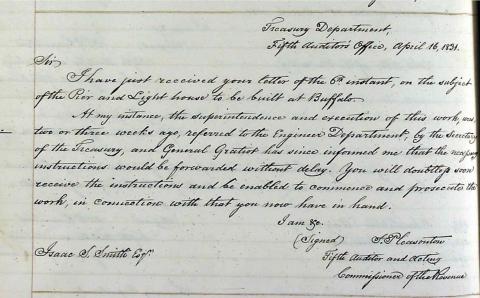 Treasury Department,
Fifth Auditors Office, April 16, 1831.
Sir
I have just received your letter of the 6th instant, on the subject
of the Pier and Light house to be built at Buffalo
At my instance, the superintendence and execution of this work, was
two or three weeks ago, referred to the Engineer Department, by the Secretary
of the Treasury, and General Gratiot has since informed me that the necessary
instructions would be forwarded without delay. You will doubtless soon
receive the instructions and be enabled to commence and prosecute the
work, in connection with that you now have in hand.
I am &c.
(Signed) S. Pleasonton
Isaac S. Smith Esqr. Fifth Auditor and Acting
Commissioner of the Revenue